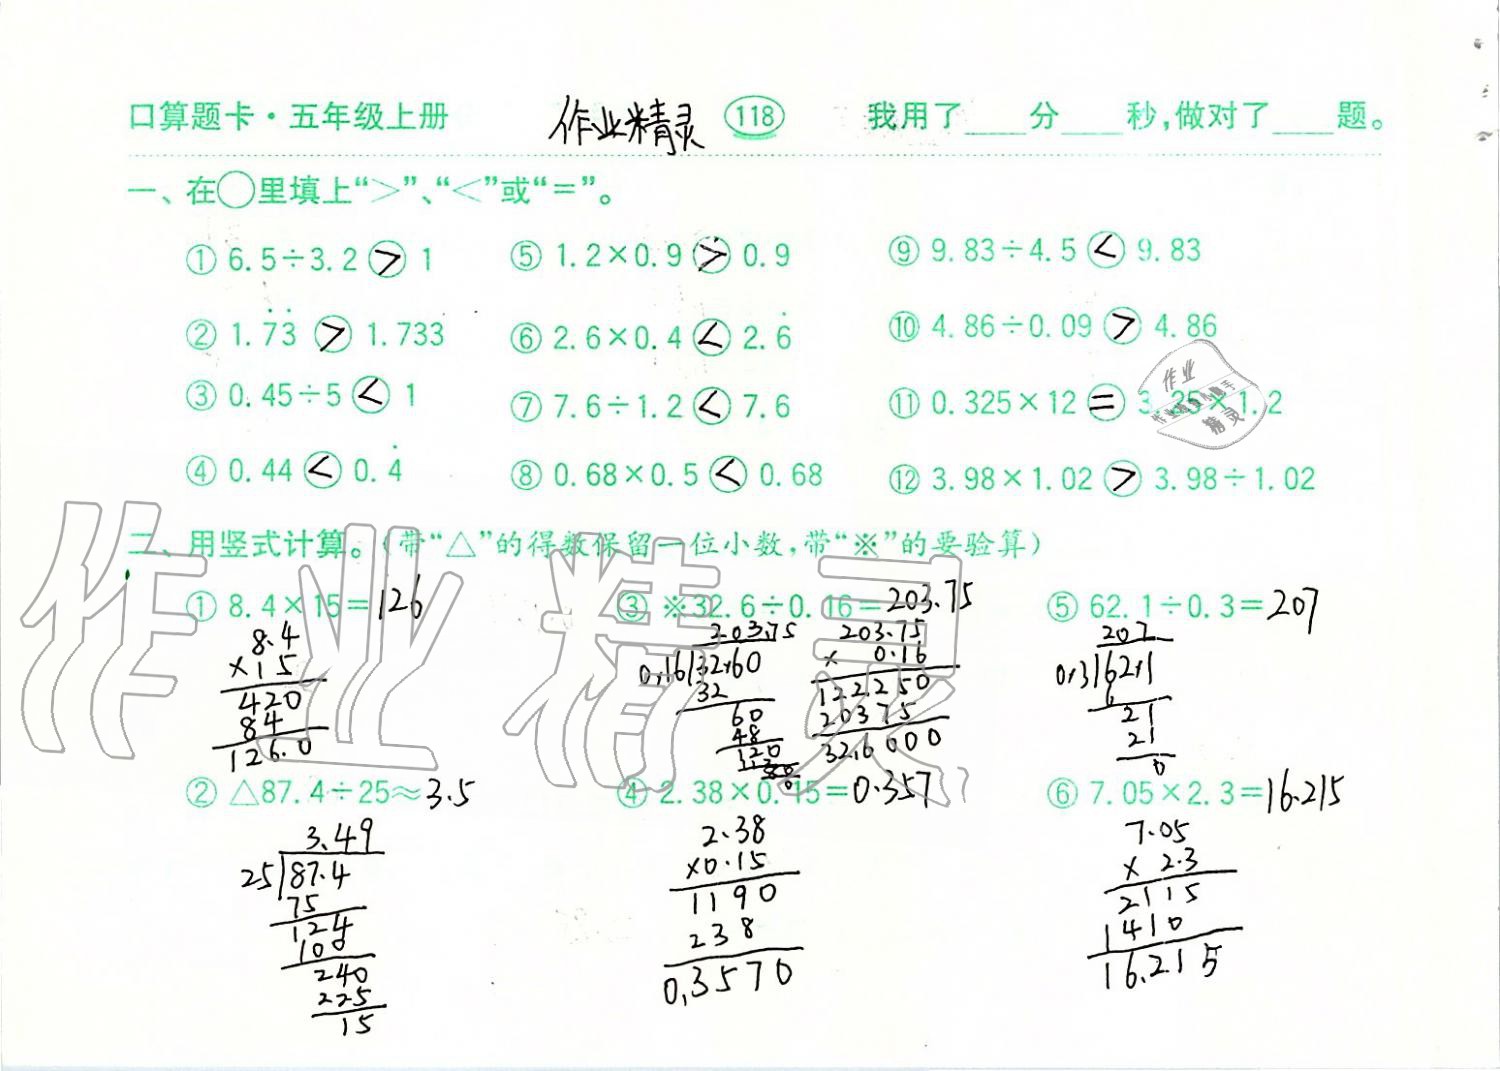 口算题卡·五年级上册 作业精灵 118 我用了____分____秒,做对了____题。
一、在○里填上“>”、“<”或“=”。
① 6.5÷3.2 > 1 ⑤ 1.2×0.9 > 0.9 ⑨ 9.83÷4.5 < 9.83
② 1.7̇3̇ > 1.733 ⑥ 2.6×0.4 < 2.6̇ ⑩ 4.86÷0.09 > 4.86
③ 0.45÷5 < 1 ⑦ 7.6÷1.2 < 7.6 ⑪ 0.325×12 = 3.25×1.2
④ 0.44 < 0.4̇ ⑧ 0.68×0.5 < 0.68 ⑫ 3.98×1.02 > 3.98÷1.02
二、用竖式计算。(带“△”的得数保留一位小数,带“※”的要验算)
① 8.4×15=126 ③ ※32.6÷0.16=203.75 ⑤ 62.1÷0.3=207
8.4
×15
420
84
126.0
203.75
0.16 32.60
32
60
48
120
203.75
× 0.16
122250
20375
32.6000
207
0.3 62.1
6
21
21
0
② △87.4÷25≈3.5 ④ 2.38×0.15=0.357 ⑥ 7.05×2.3=16.215
3.49
25 87.4
75
124
100
240
225
15
2.38
×0.15
1190
238
0.3570
7.05
× 2.3
2115
1410
16.215
作业精灵
作业
精灵